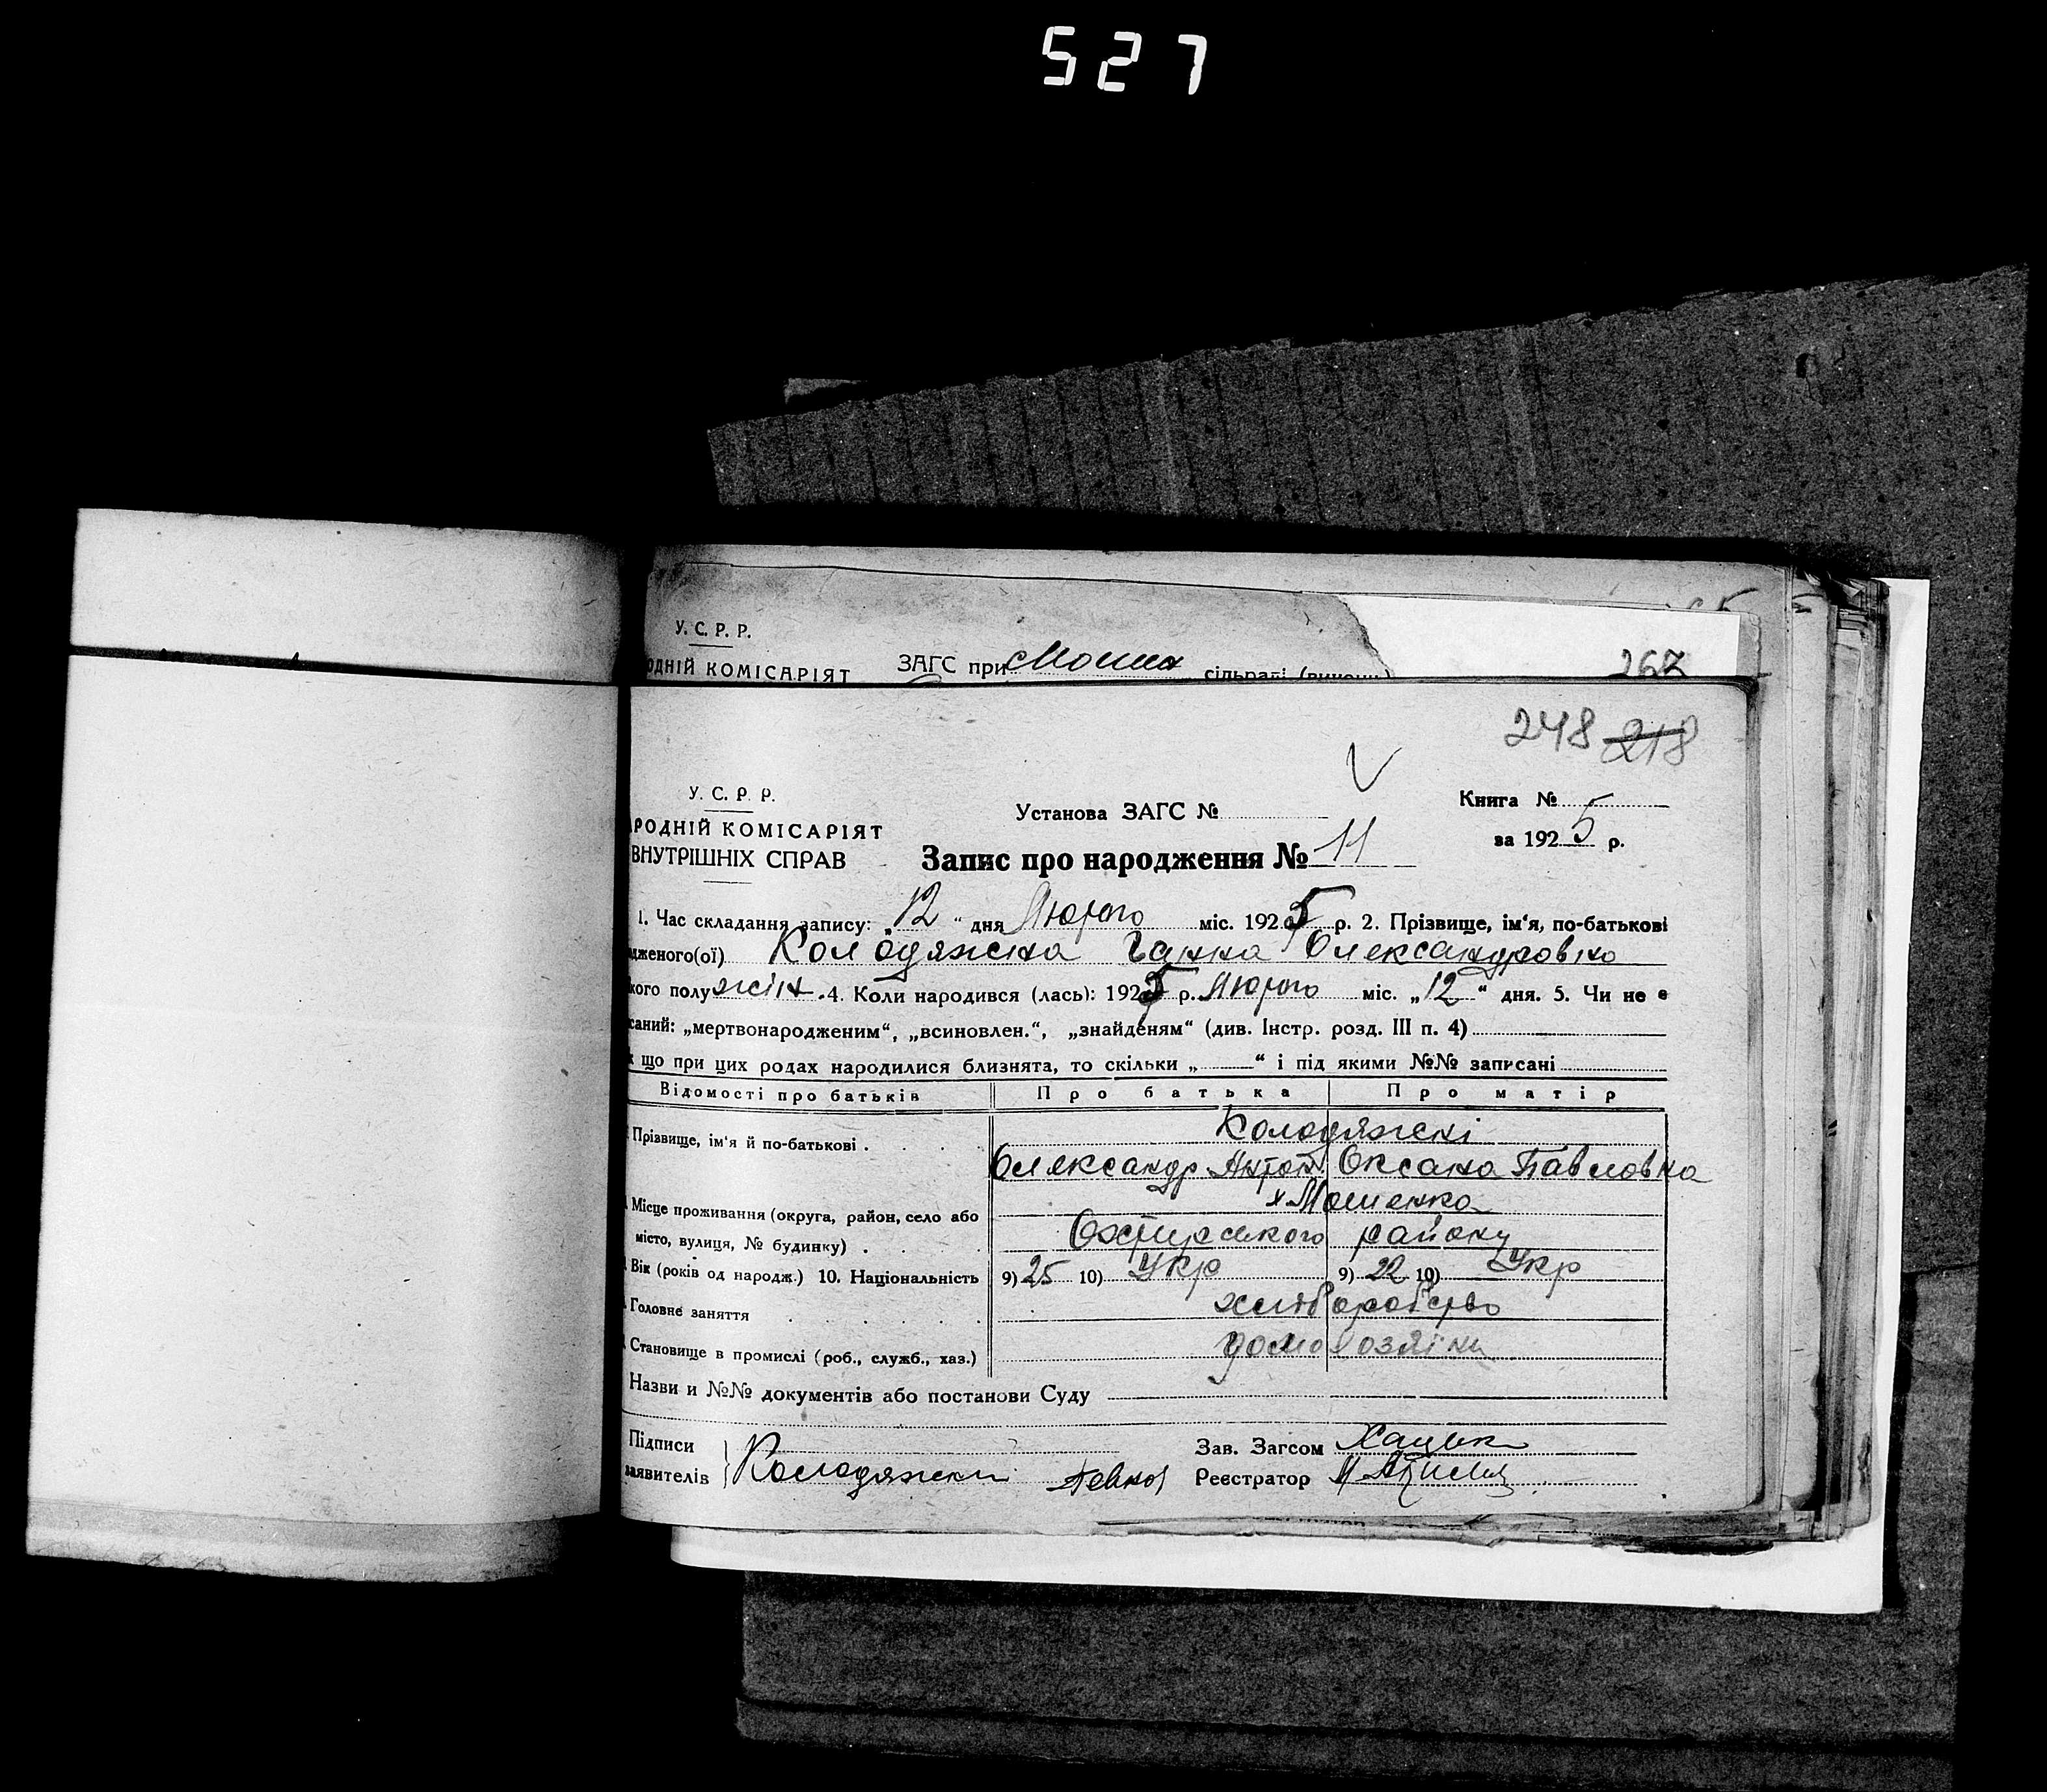 527
У. С. Р. Р.
ОДНІЙ КОМІСАРІЯТ ЗАГС при сільраті
267
248 218
У. С. Р. Р.
РОДНІЙ КОМІСАРІЯТ
ВНУТРІШНІХ СПРАВ
Установа ЗАГС №
Книга №
за 1925 р.
Запис про народження № 11
1. Час складання запису: 12 " дня Лютого міс. 1925 р. 2. Прізвище, ім'я, по-батькові
дженого(ої) Колодяжна Ганна Олександровна
кого полу жін. 4. Коли народився (лась): 1925 р. Лютого міс. „12" дня. 5. Чи не є
саний: „мертвонародженим", „всиновлен.", „знайденям" (див. Інстр. розд. III п. 4)
що при цих родах народилися близнята, то скільки „ " і під якими №№ записані
Відомості про батьків Про батька Про матір
Прізвище, ім'я й по-батькові . Колодяжскі
Олександр Антон Оксана Павловна
Місце проживання (округа, район, село або х Мошенка
місто, вулиця, № будинку) . Охтирського району
Вік (років од народж.) 10. Національність 9) 25 10) Укр 9) 22 10) Укр
Головне заняття хліборобство
Становище в промислі (роб., служб., хаз.)
Назви и №№ документів або постанови Суду
Підписи
заявителів Колодяжски
Зав. Загсом
Реєстратор